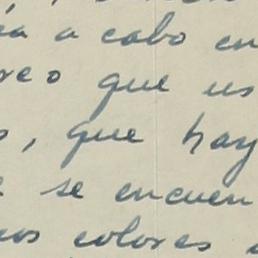 a cabo en
reo que us
, que hay
se encuen
nos colores